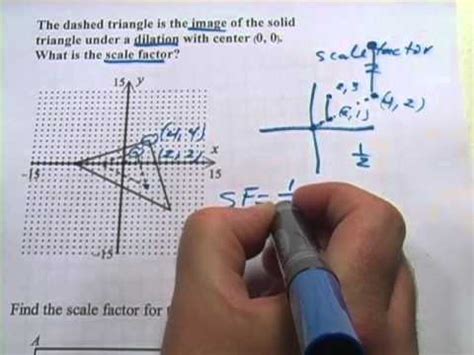 The dashed triangle is the image of the solid
triangle under a dilation with center (0, 0).
What is the scale factor?
scale factor
2
15 y
(4,4)
(2,2)
x
-15
15
-15
2,3
(4,2)
1/2
SF= 1
Find the scale factor for
A